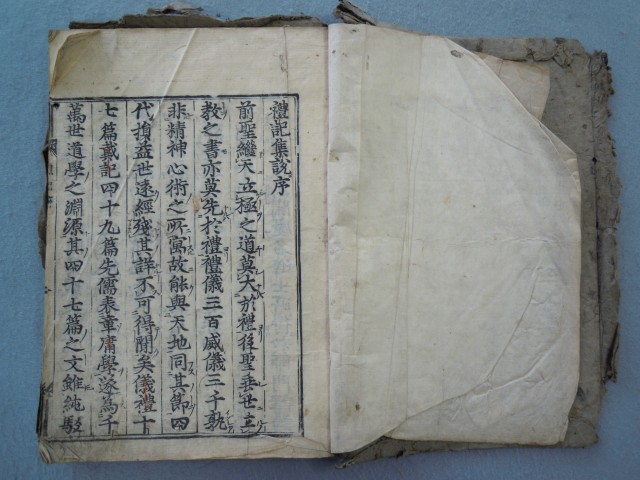 禮記集説序
前聖繼天立極之道莫大於禮後聖垂世立
教之書亦莫先於禮禮儀三百威儀三千孰
非精神心術之所寓故能與天地同其節四
代損益世遠經殘其詳不可得聞矣儀禮十
七篇戴記四十九篇先儒表章庸學遂爲千
萬世道學之淵源其四十七篇之文雖純駁